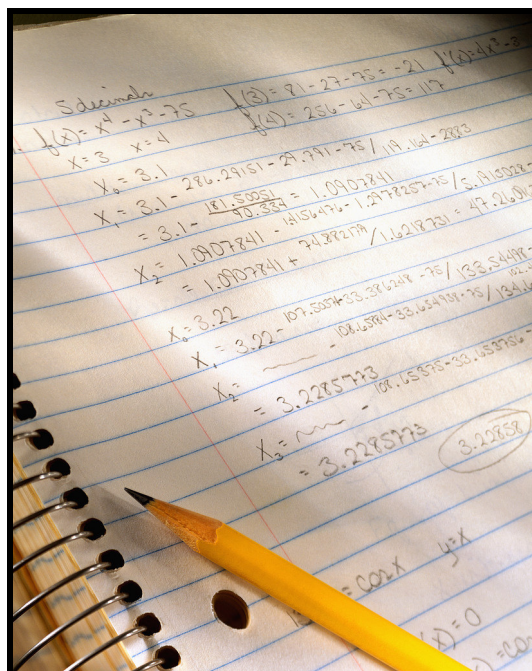 5 decimals
f(x) = x⁴ - x³ - 75    f(3) = 81 - 27 - 75 = -21    f'(x) = 4x³ - 3
x = 3   x = 4    f(4) = 256 - 64 - 75 = 117
X₀ = 3.1
X₁ = 3.1 - 286.29151 - 29.791 - 75 / 119.164 - 2883
= 3.1 - 181.50051 / 90.334 = 1.0907841
X₂ = 1.0907841 - 1.4156476 - 1.2978257 - 75 / 5.1913028
= 1.0907841 + 74.882179 / 1.6218731 = 47.2609
X₀ = 3.22
X₁ = 3.22 - 107.50374 - 33.386248 - 75 / 133.54498 -
X₂ = - 108.65884 - 33.654958 - 75 / 134.6
= 3.2285773
X₃ = - 108.65375 - 33.653756 -
= 3.2285773    3.22858
= cos x   y = x
(x) = 0
) = cos